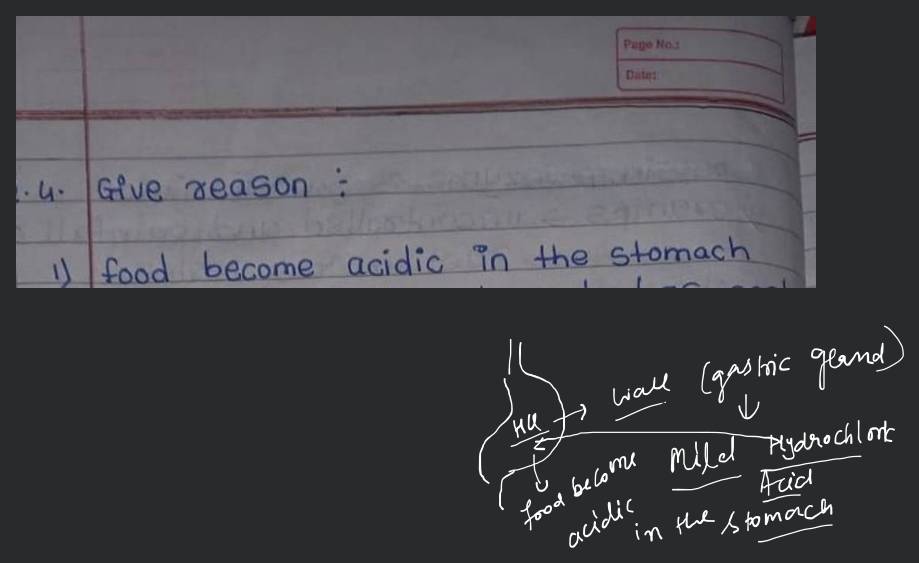 Page No.:
Date:
.4. Give reason :
1) food become acidic in the stomach
wall (gastric gland)
HCl
Mild Hydrochloric
Acid
food become
acidic in the stomach